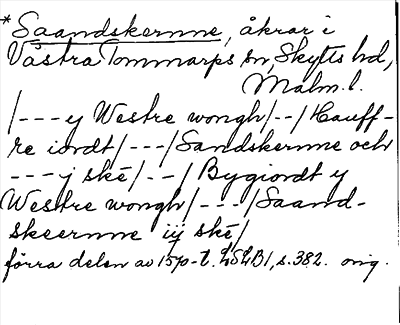 *Saandskermme, åkrar i
Västra Tommarps sn, Skytts hd,
Malm.l.
/---y Westre wongh/--/Hauff-
re iordt/---/Sandskermme och
---j ské/--/Bygiordt y
Westre wongh/---/Saand-
skeermme iij ské/
förra delen av 1570-t. LSLB1, s.382. orig.